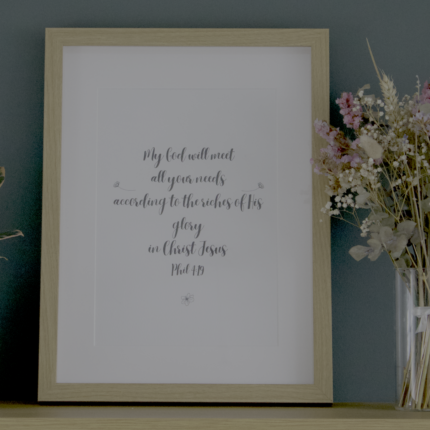 My God will meet
all your needs
according to the riches of His
glory
in Christ Jesus
Phil 4:19